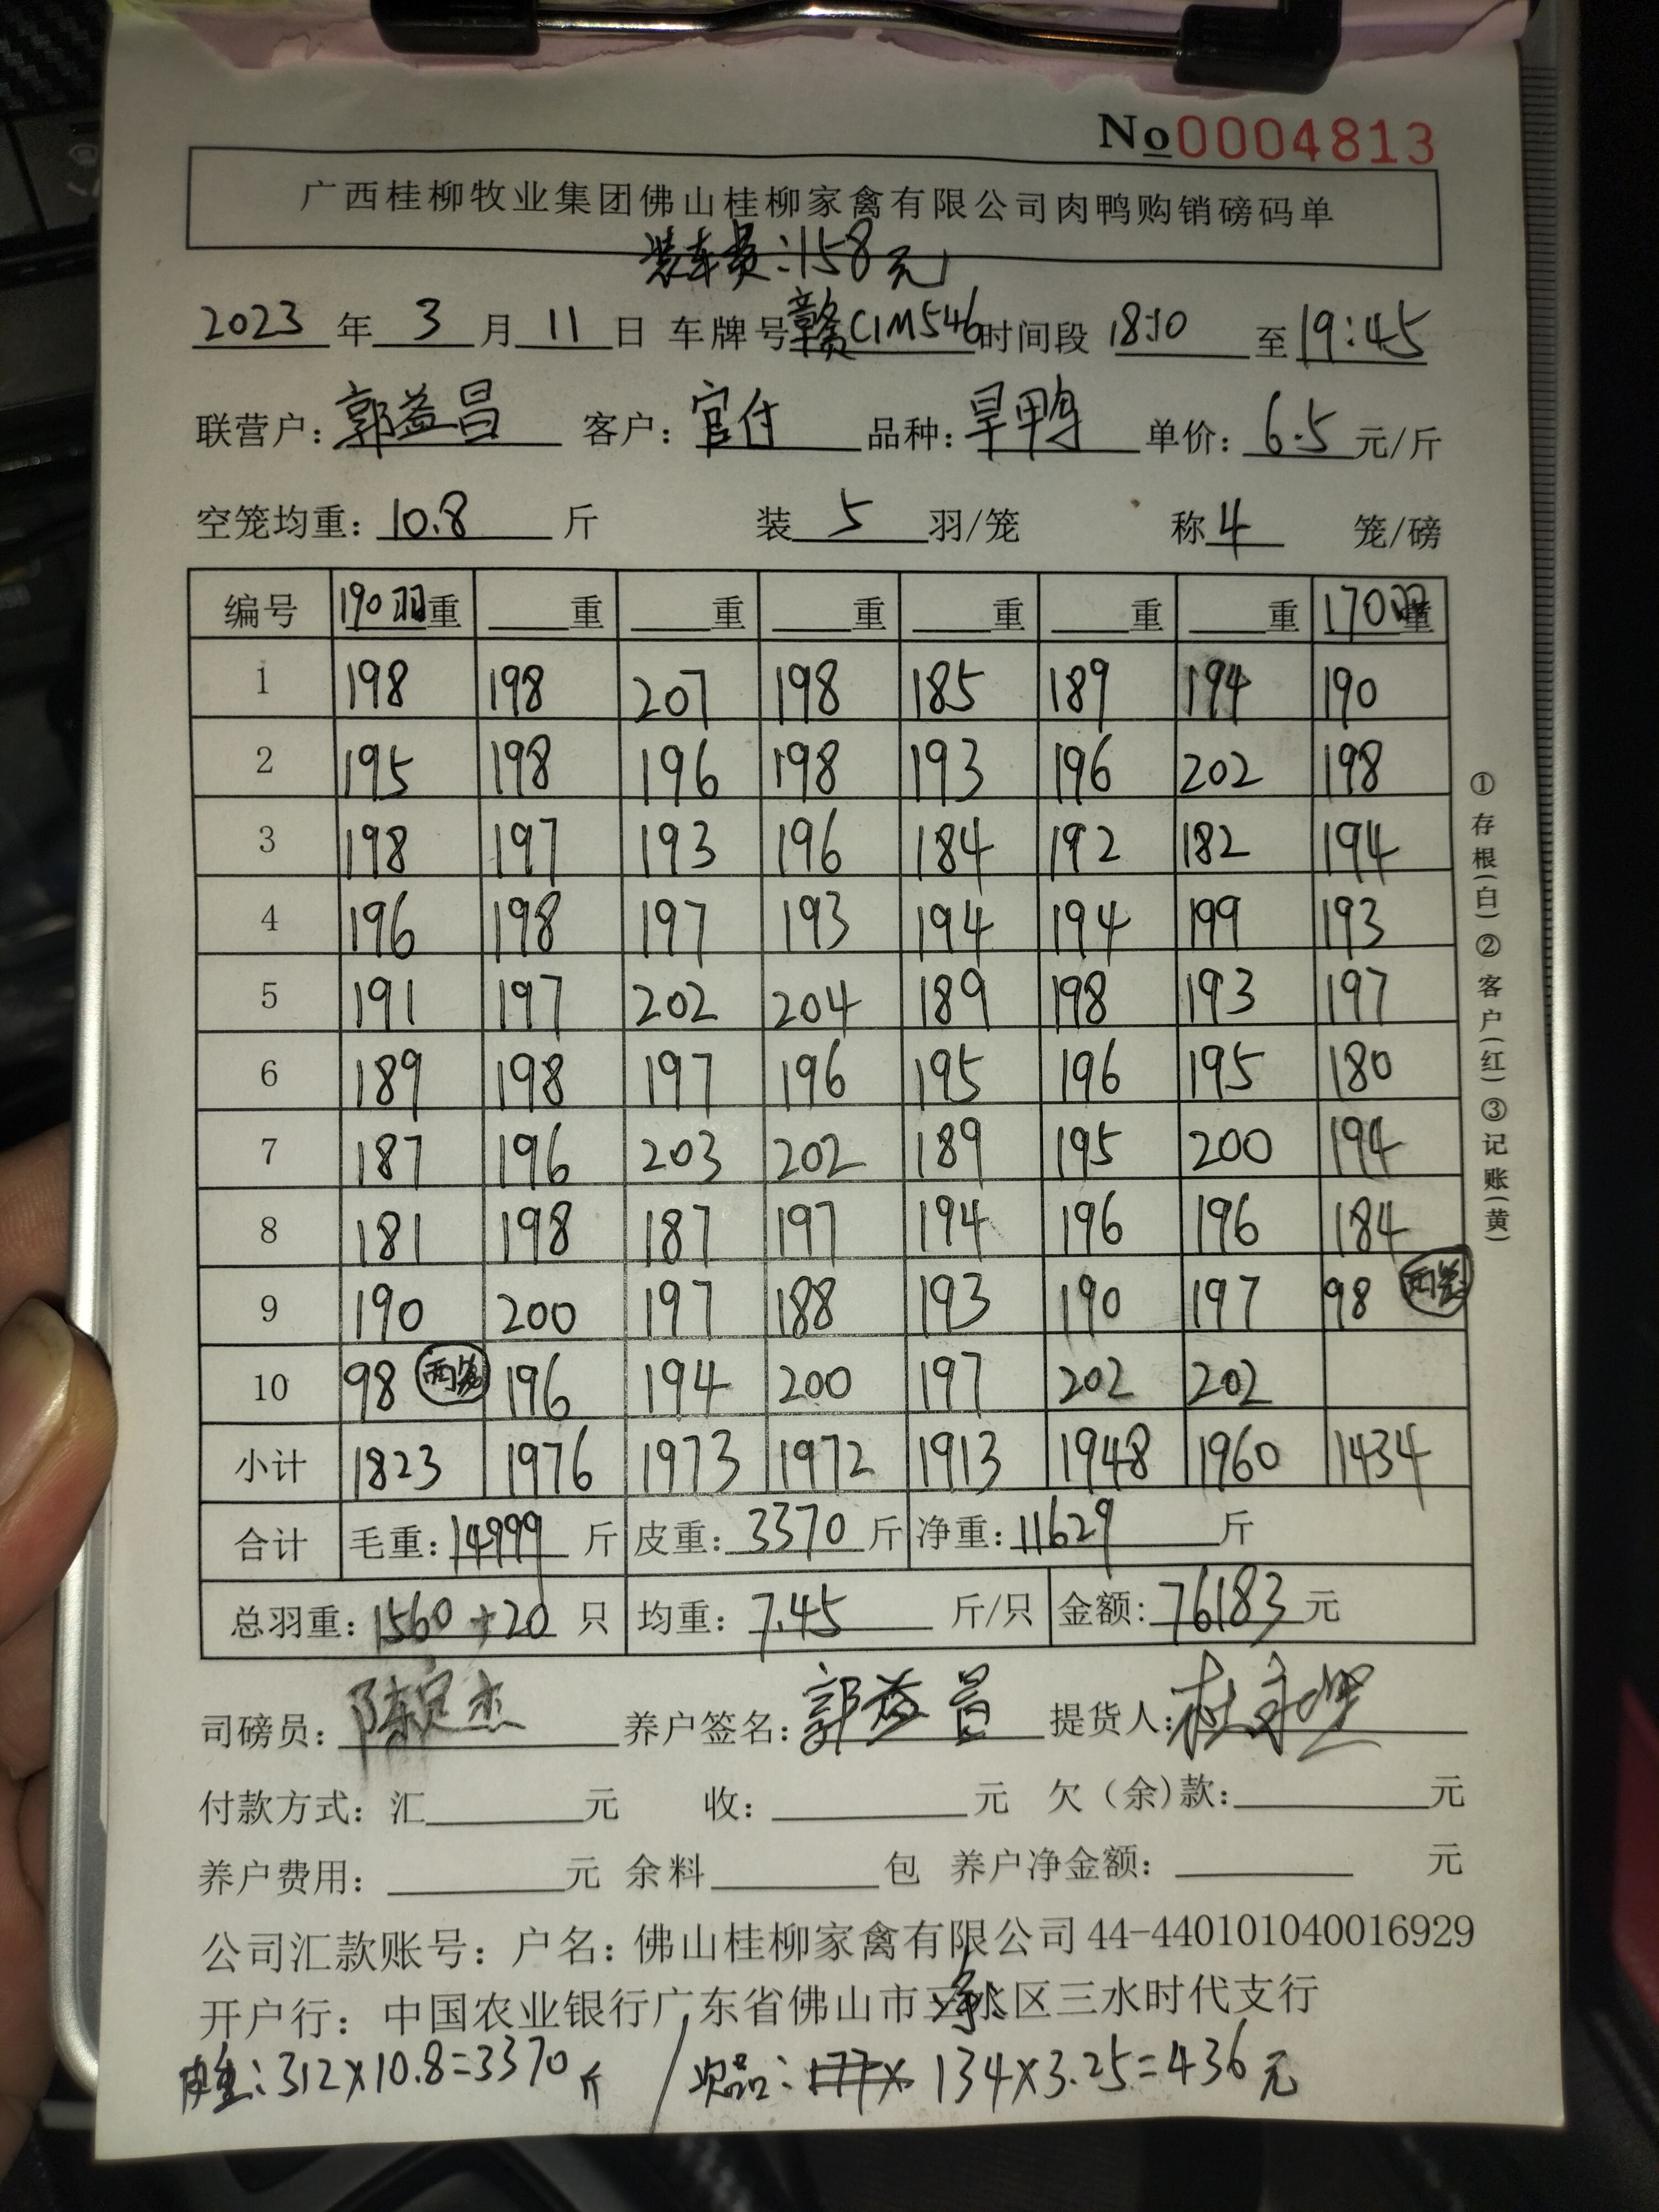 No 0004813
广西桂柳牧业集团佛山桂柳家禽有限公司肉鸭购销磅码单
装车员:158元
2023 年 3 月 11 日 车牌号 赣C1M546 时间段 18:10 至 19:45
联营户: 郭益昌 客户: 官付 品种: 旱鸭 单价: 6.5 元/斤
空笼均重: 10.8 斤 装 5 羽/笼 称 4 笼/磅
编号 190羽重 重 重 重 重 重 重 170羽重
1 198 198 207 198 185 189 194 190
2 195 198 196 198 193 196 202 198
3 198 197 193 196 184 192 182 194
4 196 198 197 193 194 194 199 193
5 191 197 202 204 189 198 193 197
6 189 198 197 196 195 196 195 180
7 187 196 203 202 189 195 200 194
8 181 198 187 197 194 196 196 184
9 190 200 197 188 193 190 197 98 两笼
10 98 两笼 196 194 200 197 202 202
小计 1823 1976 1973 1972 1913 1948 1960 1434
合计 毛重: 14999 斤 皮重: 3370 斤 净重: 11629 斤
总羽重: 1560+20 只 均重: 7.45 斤/只 金额: 76183 元
司磅员: 养户签名: 郭益昌 提货人:
付款方式: 汇 元 收: 元 欠(余)款: 元
养户费用: 元 余料 包 养户净金额: 元
公司汇款账号: 户名: 佛山桂柳家禽有限公司 44-440101040016929
开户行: 中国农业银行广东省佛山市三水区三水时代支行
皮重:312×10.8=3370斤 / 次品: 177× 134×3.25=436元
①存根(白)②客户(红)③记账(黄)